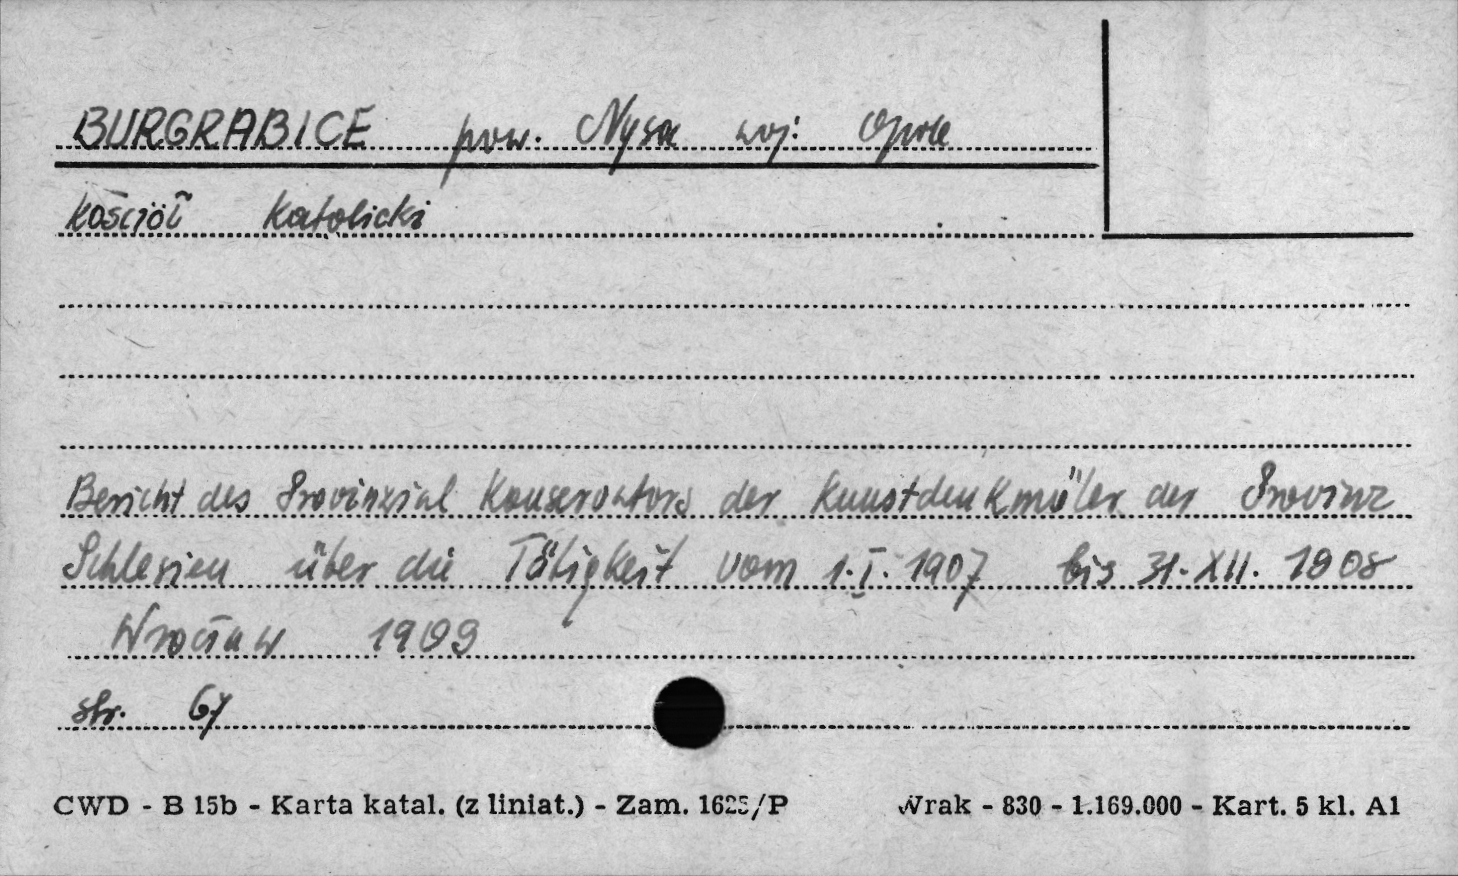 BURGRABICE pow. Nysa woj: Opole
kościół katolicki
Bericht des Provinzial Konservators der Kunstdenkmäler der Provinz
Schlesien über die Tätigkeit vom 1.I.1907 bis 31.XII.1908
Wrocław 1909
str. 67
CWD - B 15b - Karta katal. (z liniat.) - Zam. 1625/P Wrak - 830 - 1.169.000 - Kart. 5 kl. A1